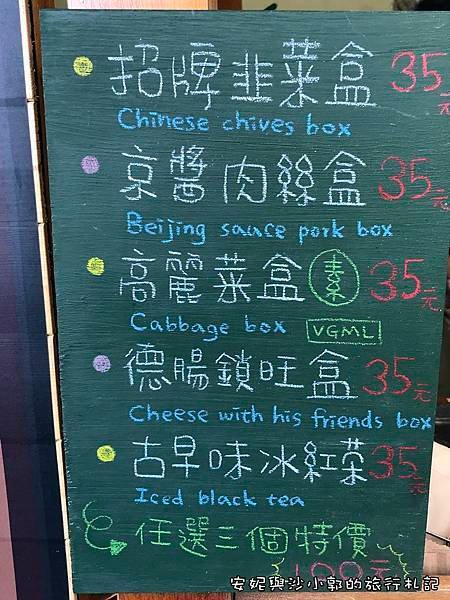 招牌韭菜盒 35元
Chinese chives box
京醬肉絲盒 35元
Beijing sauce pork box
高麗菜盒 素 35元
Cabbage box VGML
德腸鎖旺盒 35元
Cheese with his friends box
古早味冰紅茶 35元
Iced black tea
任選三個特價
100元
安妮與沙小郭的旅行札記